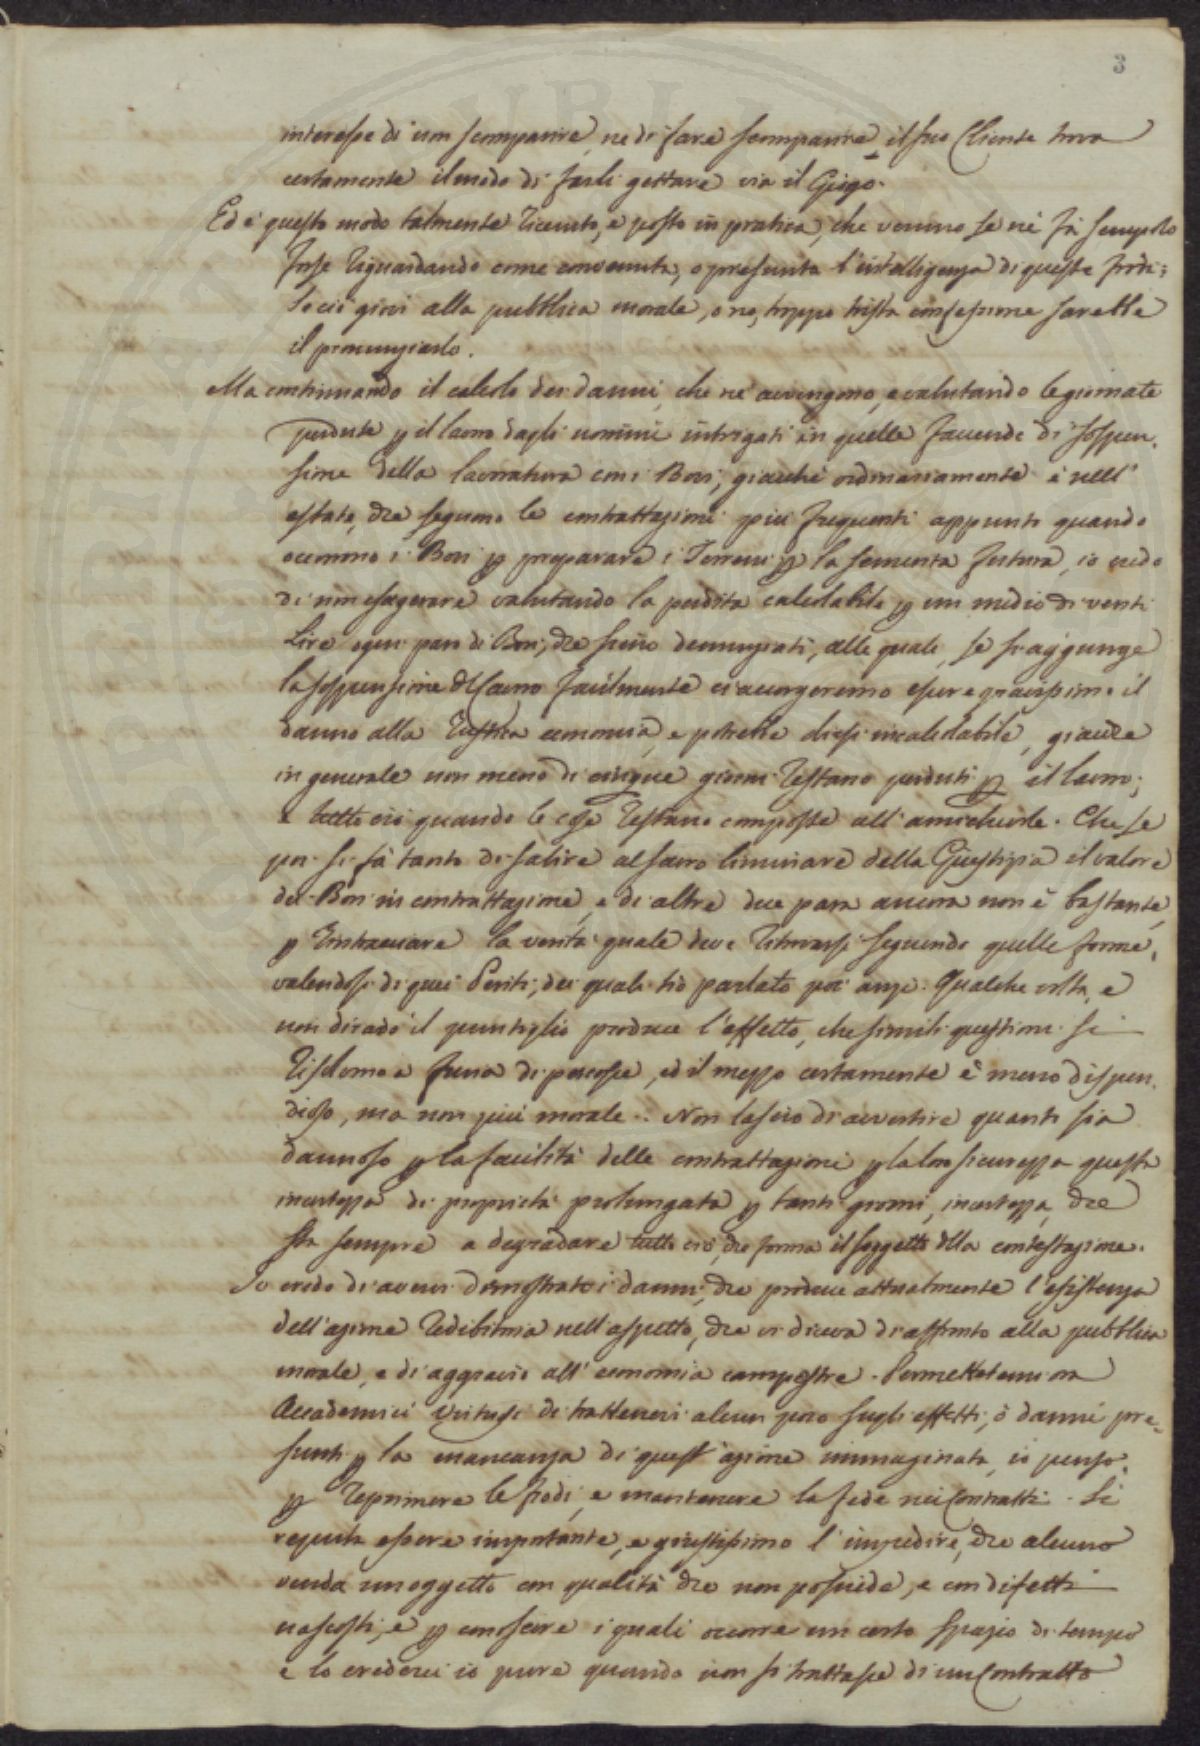 3
interesse di non scomparire, ne di fare scomparire il suo Cliente trova
certamente il modo di farli gettare via il Giogo.
Ed è questo modo talmente ricevuto, e posto in pratica, che veruno se nè fà scrupolo
forse riguardando come convenuta, o presunta l'intelligenza di queste frodi;
Se ciò giovi alla pubblica morale, o no, troppo trista confessione sarebbe
il pronunziarlo.
Ma continuando il calcolo dei danni, che ne avvengono, e valutando le giornate
perdute p il lavoro dagli uomini intrigati in quelle faccende di sospen,
sione della lavoratura con i Bovi, giacchè ordinariamente è nell'
estate, che seguono le contrattazioni più frequenti appunto quando
occorrono i Bovi p preparare i Terreni p la sementa futura, io credo
di non esagerare valutando la perdita calcolabile p un medio di venti
Lire ogni par di Bovi, che siano denunziati, alle quali, se si aggiunge
la sospensione del lavoro facilmente ci accorgeremo essere gravissimo il
danno alla rustica economia, e potrebbe dirsi incalcolabile, giacche
in generale non meno di cinque giorni restano perduti p il lavoro;
e tutto ciò quando le cose restano composte all'amichevole. Che se
poi si fà tanto di salire al sacro liminare della Giustizia il valore
dei Bovi in contrattazione, e di altre due para ancora non è bastante,
p rintracciare la verità quale deve ritrovarsi seguendo quelle forme,
valendosi di quei Periti, dei quali hò parlato poc' anzi. Qualche volta, e
non di rado il puntiglio produce l'effetto, che simili questioni si
risolvono a furia di percosse, ed il mezzo certamente è meno dispen,
dioso, ma non più morale. Non lascio di avvertire quanto sia
dannoso p la facilità delle contrattazioni p la loro sicurezza questa
incertezza di proprietà prolungata p tanti giorni, incertezza, che
sta sempre a degradare tutto ciò, che forma il soggetto della contestazione.
Io credo di avervi dimostrato i danni, che produce attualmente l'esistenza
dell'azione redibitoria nell'aspetto, che vi diceva di affronto alla pubblica
morale, e di aggravio all'economia campestre. Permettetemi ora
Accademici Virtuosi di trattenervi alcun poco sugli effetti, ò danni pre,
sunti p la mancanza di quest'azione immaginata, io penso,
p reprimere le frodi, e mantenere la fede nei Contratti. Si
reputa essere importante, e giustissimo l'impedire, che alcuno
venda un oggetto con qualità che non possiede, e con difetti
nascosti, e p conoscere i quali occorre un certo spazio di tempo
e lo crederei io pure quando non si trattasse di un Contratto